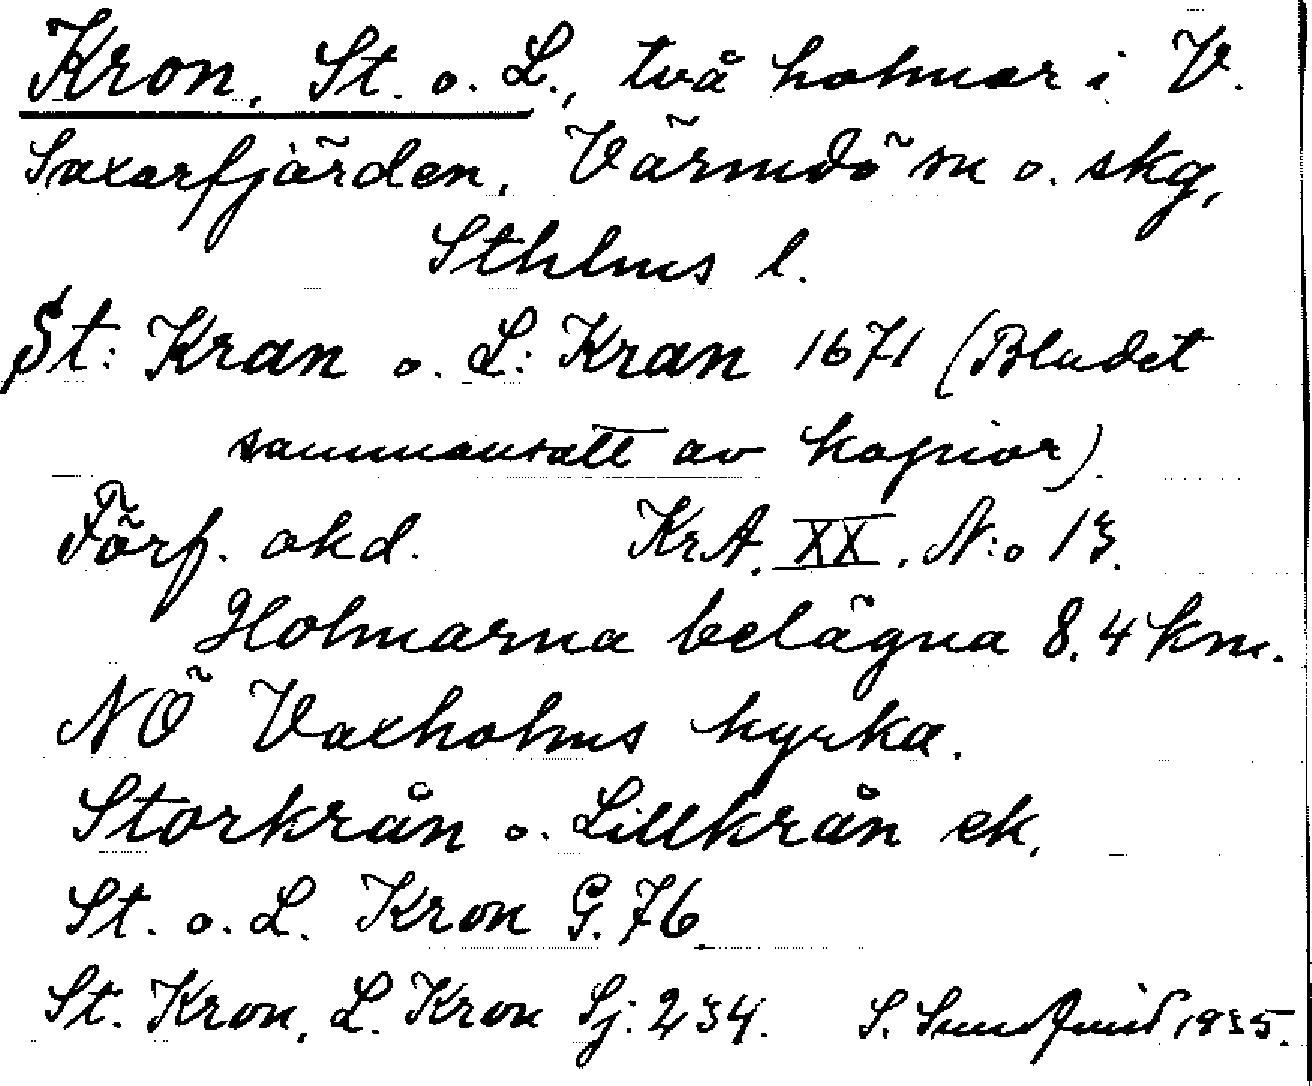 Kron, St. o. L., två holmar i V.
Saxarfjärden, Värmdö sn o. skg,
Sthlms l.
St: Kran o. L: Kran 1671 (Bladet
sammansatt av kopior)
Förf. okd. KrA. XX. N:o 13.
Holmarna belägna 8.4 km.
NÖ Vaxholms kyrka.
Storkrån o. Lillkrån ek.
St. o. L. Kron G. 76
St. Kron, L. Kron Sj: 234. S. 1935.